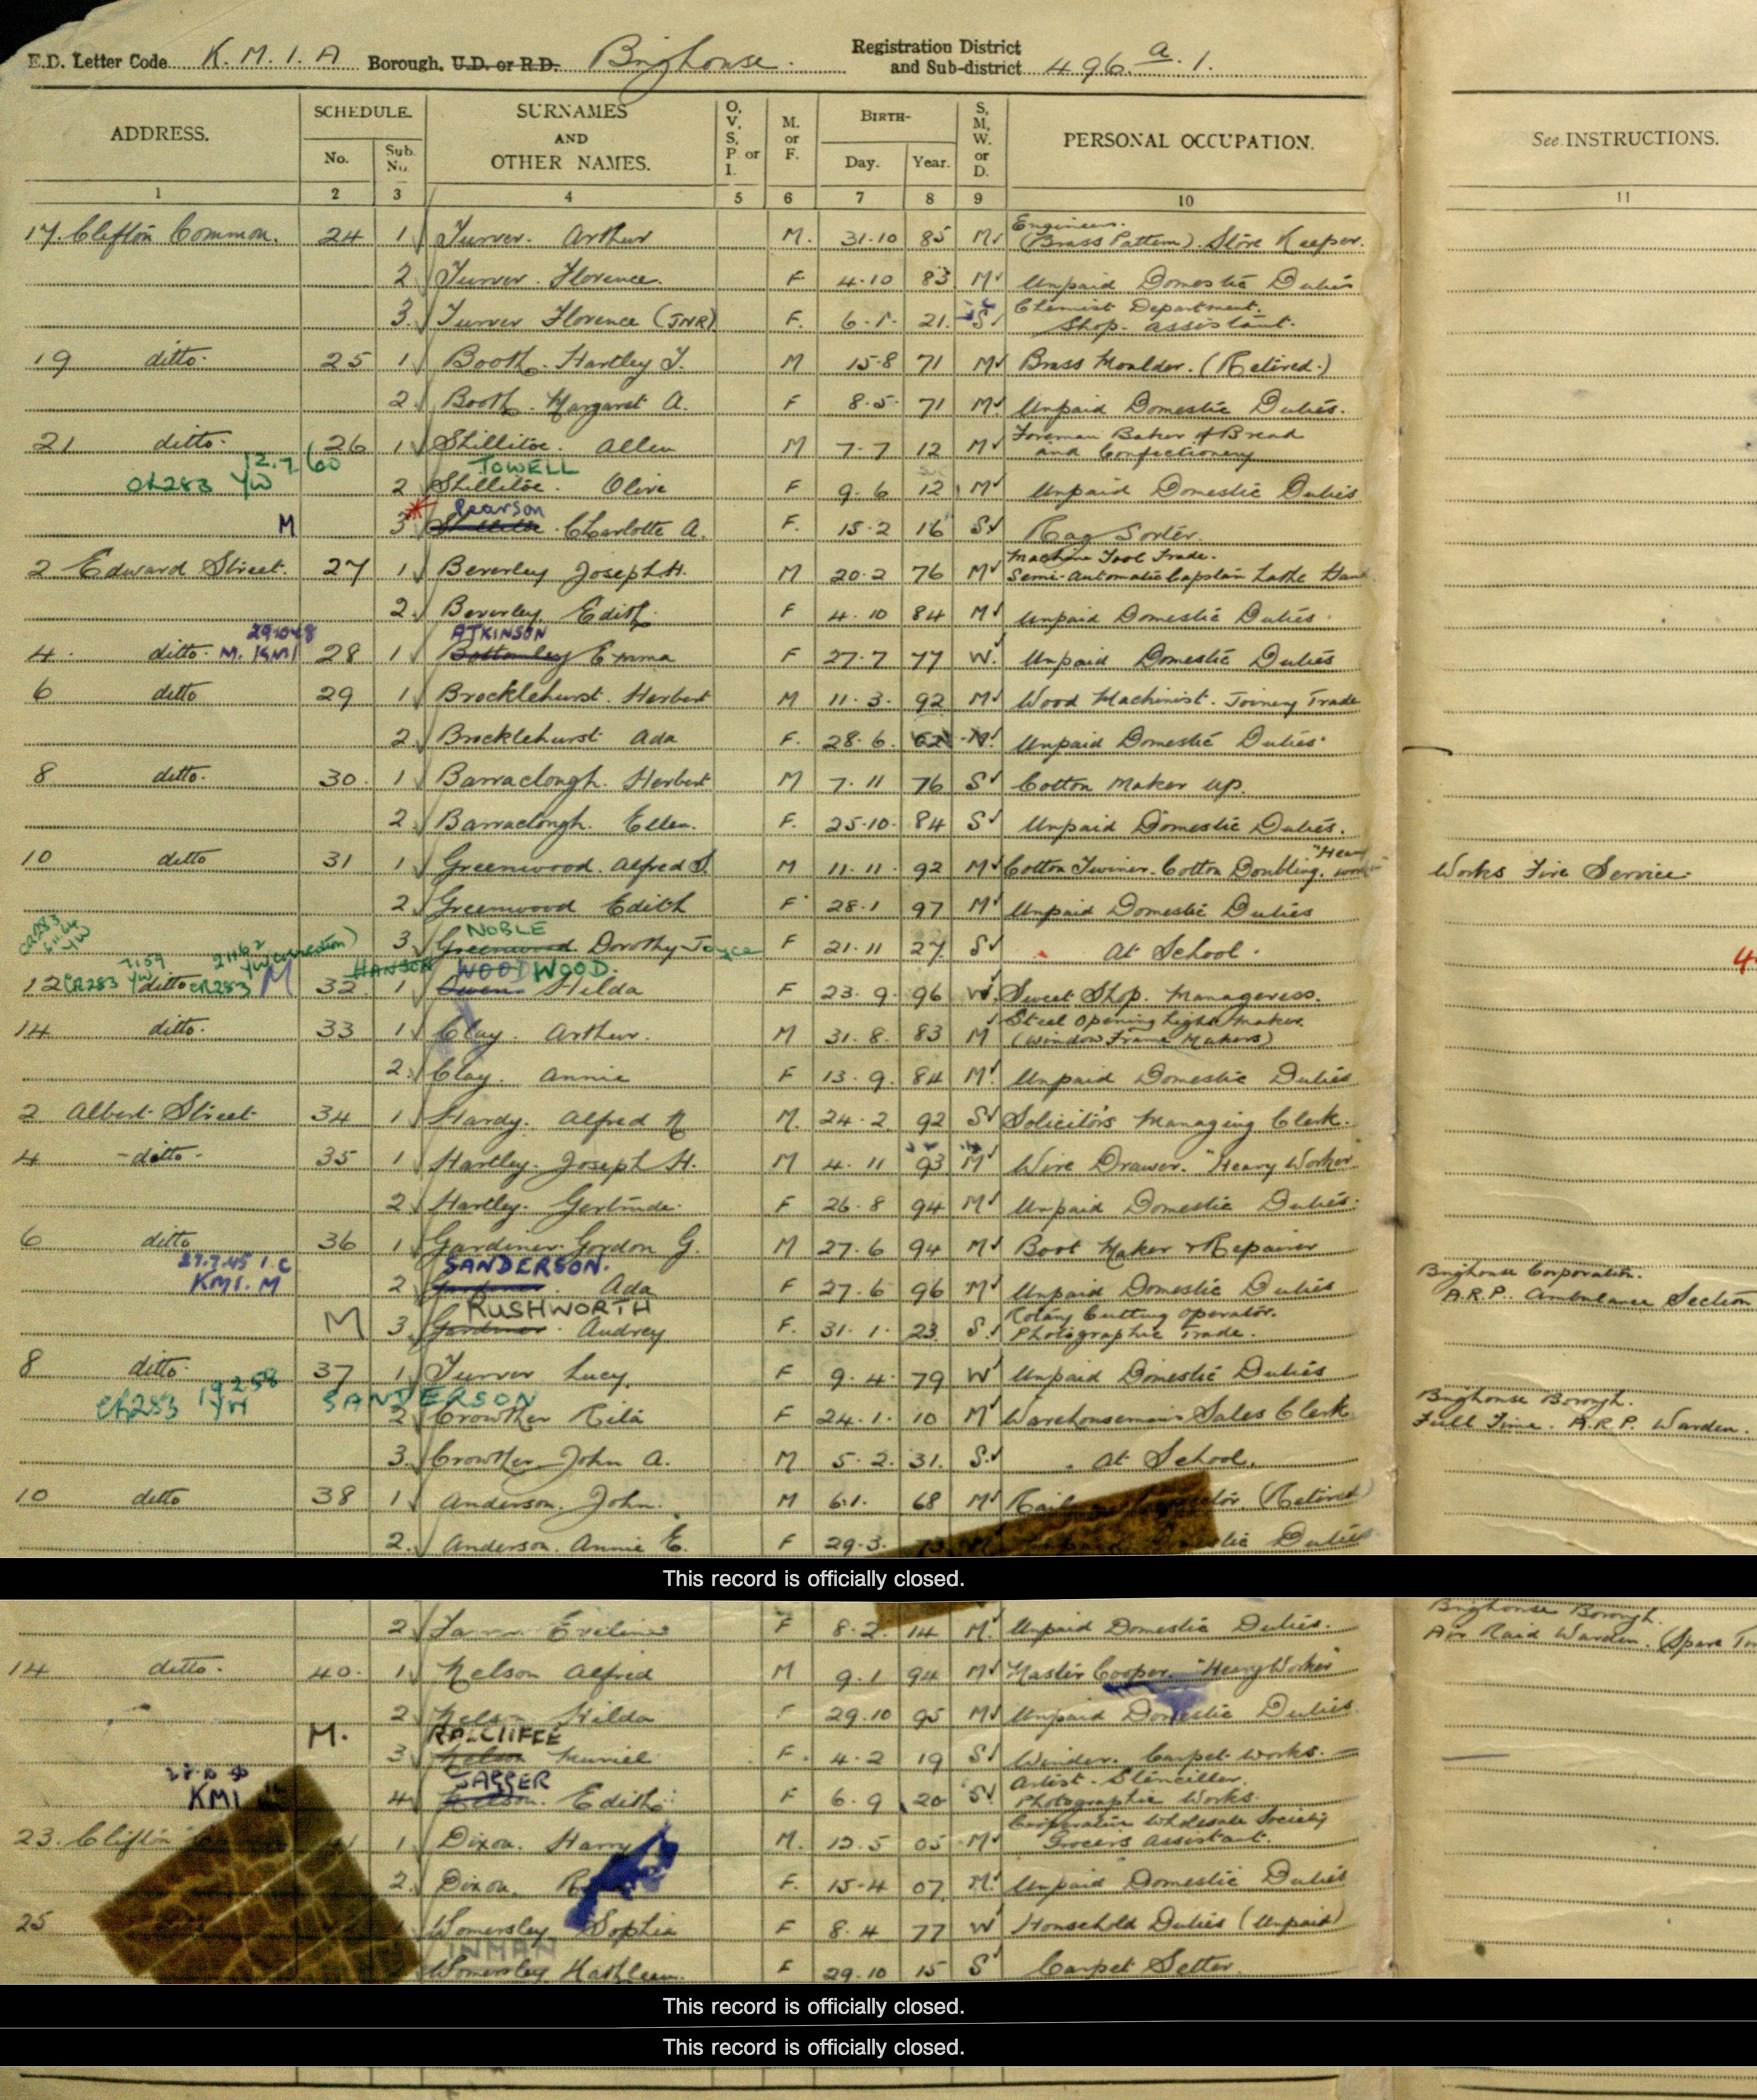 E.D. Letter Code K.M.I.A Borough, U.D. or R.D. Brighouse. Registration District and Sub-district 496.a.1.
ADDRESS. SCHEDULE. SURNAMES AND OTHER NAMES. O, V, S, P or I. M. or F. BIRTH- S, M, W. or D. PERSONAL OCCUPATION. See INSTRUCTIONS.
No. Sub. No. Day. Year.
1 2 3 4 5 6 7 8 9 10 11
17. Clifton Common. 24 1 Turver. Arthur M. 31.10 85 M Engineers. (Brass Pattern). Store Keeper.
2 Turver. Florence. F 4.10 83 M Unpaid Domestic Duties
3. Turver Florence (JNR) F. 21. S Chemist Department. Shop-assistant.
19 ditto. 25 1 Booth. Hartley M 15.8 71 M Brass Moulder. (Retired.)
2 Booth. Margaret A. F 8.5. 71 M Unpaid Domestic Duties.
21 ditto. 26 1 Shillitoe. Allen M 7.7 12 M Foreman Baker of Bread and Confectionery
CR283 YW 12.7.60 TOWELL
2 Shillitoe. Olive F 9.6 12 M Unpaid Domestic Duties
Pearson
M 3 Charlotte A. F. 15.2 16 S Rag Sorter.
2 Edward Street. 27 1 Beverley Joseph H. M 20.2 76 M Machine Tool Trade. Semi-Automatic Capstan Lathe Han
2 Beverley Edith. F 4.10 84 M Unpaid Domestic Duties
ATKINSON
4. ditto. M. KMI 28 1 Bottomley Emma F 27.7 77 W. Unpaid Domestic Duties
6 ditto 29 1 Brocklehurst. Herbert M 11.3. 92 M Wood Machinist. Joinery Trade
2 Brocklehurst Ada F. 28.6. Unpaid Domestic Duties
8 ditto. 30. 1 Barraclough. Herbert M 7.11 76 S Cotton Maker up.
2 Barraclough. Ellen. F. 25.10. 84 S Unpaid Domestic Duties.
10 ditto 31 1 Greenwood. Alfred S. M 11.11. 92 M Cotton Twiner. Cotton Doubling. "Heavy Works Fire Service.
2 Greenwood Edith F 28.1 97 M Unpaid Domestic Duties
NOBLE
3 Greenwood Dorothy-Joyce F 21.11 27 S At School.
HANSON WOOD WOOD.
12 CR283 ditto CR283 M 32 1 Owen Hilda F 23.9. 96 W. Sweet Shop. Manageress.
14 ditto. 33 1 Clay. Arthur. M 31.8. 83 M Steel Opening Light maker. (Window Frame Makers)
2. Clay. Annie F 13.9. 84 M Unpaid Domestic Duties
2 Albert Street 34 1 Hardy. Alfred M. 24.2. 92 S Solicitors Managing Clerk.
4 -ditto- 35 1 Hartley. Joseph H. M 4.11 93 M Wire Drawer. "Heavy Worker
2 Hartley. Gertrude. F 26.8 94 M Unpaid Domestic Duties.
6 ditto 36 1 Gardiner Gordon G. M 27.6 94 M Boot Maker & Repairer
27.7.45 KMI. M SANDERSON.
2 Gardiner. Ada F 27.6 96 M Unpaid Domestic Duties Brighouse Corporation. A.R.P. Ambulance Section
M RUSHWORTH
3 Gardiner. Audrey F. 31.1. 23 S. Rotary Cutting operator. Photographic Trade.
8 ditto. 37 1 Turver Lucy. F 9.4. 79 W Unpaid Domestic Duties
CR283 19258 SANDERSON
2 Crowther Rita F 24.1. 10 M Warehouseman's Sales Clerk Brighouse Borough. Full Time. A.R.P. Warden.
3. Crowther John A. M 5.2. 31. S. At School.
10 ditto 38 1 Anderson. John. M 6.1. 68 M (Retired)
2. Anderson. Annie E. F 29.3. Duties
This record is officially closed.
2 Eveline F 8.2. 14 M. Unpaid Domestic Duties. Brighouse Borough. Air Raid Warden. (Spare
14 ditto. 40. 1 Nelson Alfred M 9.1 94 M Master Cooper. "Heavy Worker"
2 Nelson Hilda F 29.10 95 M Unpaid Domestic Duties
M. RALCLIFFE
3 Nelson Muriel F. 4.2 19 S Winder. Carpet works.
JAGGER
KMI 4 Nelson. Edith F 6.9 20 S Artist-Stenciller. Photographic Works.
23. Clifton 1 Dixon. Harry M. 12.5 05 M Cooperative Wholesale Society Grocers Assistant.
2 Dixon. F. 15.4 07 M. Unpaid Domestic Duties
25 Womersley Sophia F 8.4 77 W Household Duties (Unpaid)
INMAN
Womersley Kathleen. F 29.10 15 S Carpet Setter.
This record is officially closed.
This record is officially closed.